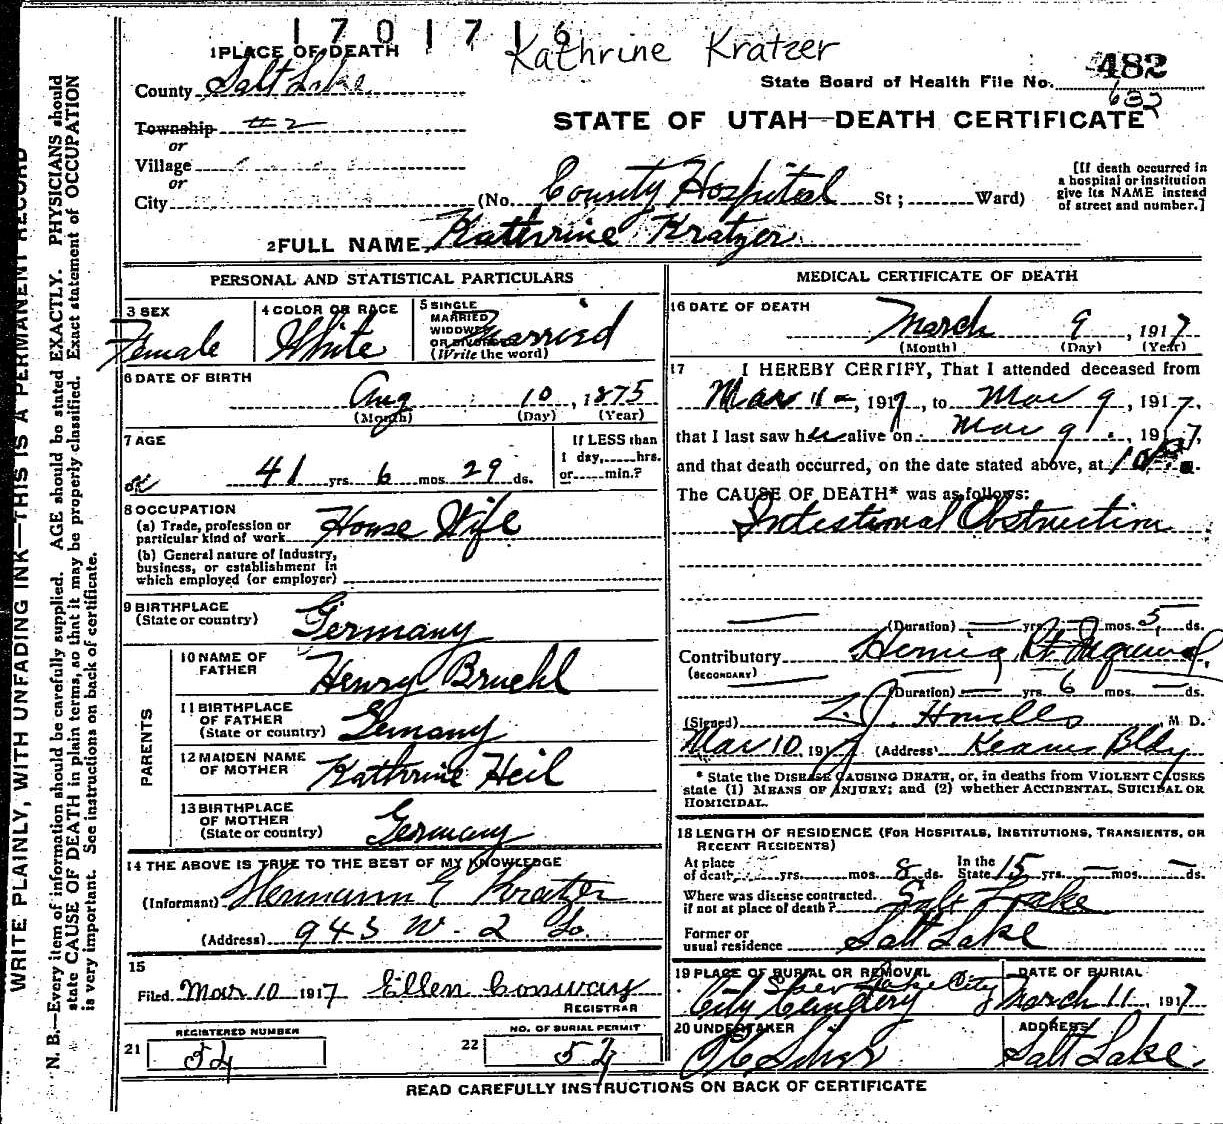 1701716
Kathrine Kratzer
1 PLACE OF DEATH
County Salt Lake
State Board of Health File No. 482
632
Township #2
or
Village
or
City
STATE OF UTAH—DEATH CERTIFICATE
(No. County Hospital St; Ward)
[If death occurred in
a hospital or institution
give its NAME instead
of street and number.]
2 FULL NAME Kathrine Kratzer
WRITE PLAINLY, WITH UNFADING INK—THIS IS A PERMANENT RECORD
N. B.—Every item of information should be carefully supplied. AGE should be stated EXACTLY. PHYSICIANS should
state CAUSE OF DEATH in plain terms, so that it may be properly classified. Exact statement of OCCUPATION
is very important. See instructions on back of certificate.
PERSONAL AND STATISTICAL PARTICULARS
3 SEX
Female
4 COLOR OR RACE
White
5 SINGLE
MARRIED
WIDOWED
OR DIVORCED
(Write the word)
Married
6 DATE OF BIRTH
Aug 10, 1875
(Month) (Day) (Year)
7 AGE
ok 41 yrs. 6 mos. 29 ds.
If LESS than
1 day, hrs.
or min.?
8 OCCUPATION
(a) Trade, profession or
particular kind of work House Wife
(b) General nature of industry,
business, or establishment in
which employed (or employer)
9 BIRTHPLACE
(State or country) Germany
PARENTS
10 NAME OF
FATHER Henry Bruehl
11 BIRTHPLACE
OF FATHER
(State or country) Germany
12 MAIDEN NAME
OF MOTHER Kathrine Heil
13 BIRTHPLACE
OF MOTHER
(State or country) Germany
14 THE ABOVE IS TRUE TO THE BEST OF MY KNOWLEDGE
(Informant) Hermann E Kratzer
(Address) 943 W. 2 So.
15
Filed Mar 10 1917 Ellen Conway
REGISTRAR
REGISTERED NUMBER
21 54
NO. OF BURIAL PERMIT
22 54
MEDICAL CERTIFICATE OF DEATH
16 DATE OF DEATH
March 9, 1917
(Month) (Day) (Year)
17 I HEREBY CERTIFY, That I attended deceased from
Mar 1, 1917, to Mar 9, 1917,
that I last saw her alive on Mar 9, 1917,
and that death occurred, on the date stated above, at 10
The CAUSE OF DEATH* was as follows:
Intestional Obstruction
(Duration) yrs. mos. 5 ds.
Contributory Hernia, Rt. Inguinal
(SECONDARY)
(Duration) yrs. 6 mos. ds.
(Signed) Howells, M D.
Mar 10, 1917 (Address) Kearns Bldg
* State the DISEASE CAUSING DEATH, or, in deaths from VIOLENT CAUSES
state (1) MEANS OF INJURY; and (2) whether ACCIDENTAL, SUICIDAL OR
HOMICIDAL.
18 LENGTH OF RESIDENCE (FOR HOSPITALS, INSTITUTIONS, TRANSIENTS, OR
RECENT RESIDENTS)
At place
of death yrs. mos. 8 ds.
In the
State 15 yrs. mos. ds.
Where was disease contracted.
if not at place of death? Salt Lake
Former or
usual residence Salt Lake
19 PLACE OF BURIAL OR REMOVAL
Salt Lake City
City Cemetery
DATE OF BURIAL
March 11, 1917
20 UNDERTAKER
ADDRESS
Salt Lake.
READ CAREFULLY INSTRUCTIONS ON BACK OF CERTIFICATE